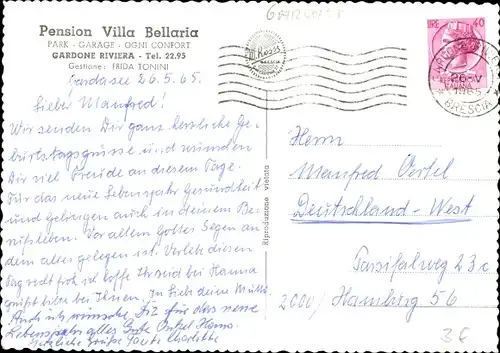 GARDONE
Pension Villa Bellaria
PARK - GARAGE - OGNI CONFORT
GARDONE RIVIERA - Tel. 22.95
Gestione: FRIDA TONINI
Gardasee 26.5.65.
Lieber Manfred!
Wir senden Dir ganz herzliche Ge-
burtstagsgrüsse und wünschen
Dir viel Freude an diesem Tage.
Für das neue Lebensjahr Gesundheit
und Gelingen auch in Deinem Be-
rufsleben. Vor allem Gottes Segen an
dem alles gelegen ist. Verlebe diesen
Tag recht froh, ich hoffe Ihr seid bei Hanna
grüßt bitte bei Ihnen. In Liebe Deine Mutti
Auch ich wünsche Dir für das neue
Lebensjahr alles Gute Onkel Hans.
Herzliche Grüße Tante Charlotte
Riproduzione vietata
LIRE 40
ITALIANA
26-V
1965
BRESCIA
Herrn
Manfred Oertel
Deutschland-West
Parsifalweg 23c
2000/ Hamburg 56
36